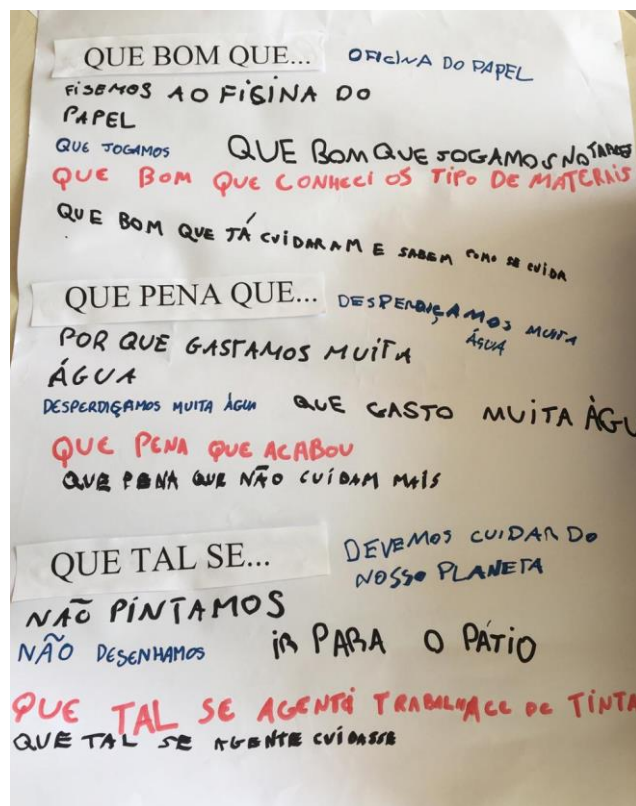 QUE BOM QUE... OFICINA DO PAPEL
FISEMOS AO FIGINA DO
PAPEL
QUE JOGAMOS QUE BOM QUE JOGAMOS NO TABLET
QUE BOM QUE CONHECI OS TIPO DE MATERAIS
QUE BOM QUE JÁ CUIDARAM E SABEM COMO SE CUIDA
QUE PENA QUE... DESPERDIÇAMOS MUITA
ÁGUA
POR QUE GASTAMOS MUITA
ÁGUA
DESPERDIÇAMOS MUITA ÁGUA QUE GASTO MUITA ÀGU
QUE PENA QUE ACABOU
QUE PENA QUE NÃO CUIDAM MAIS
QUE TAL SE... DEVEMOS CUIDAR DO
NOSSO PLANETA
NÃO PINTAMOS
NÃO DESENHAMOS IR PARA O PÁTIO
QUE TAL SE AGENTE TRABALHACE DE TINTA
QUE TAL SE AGENTE CUIDASSE